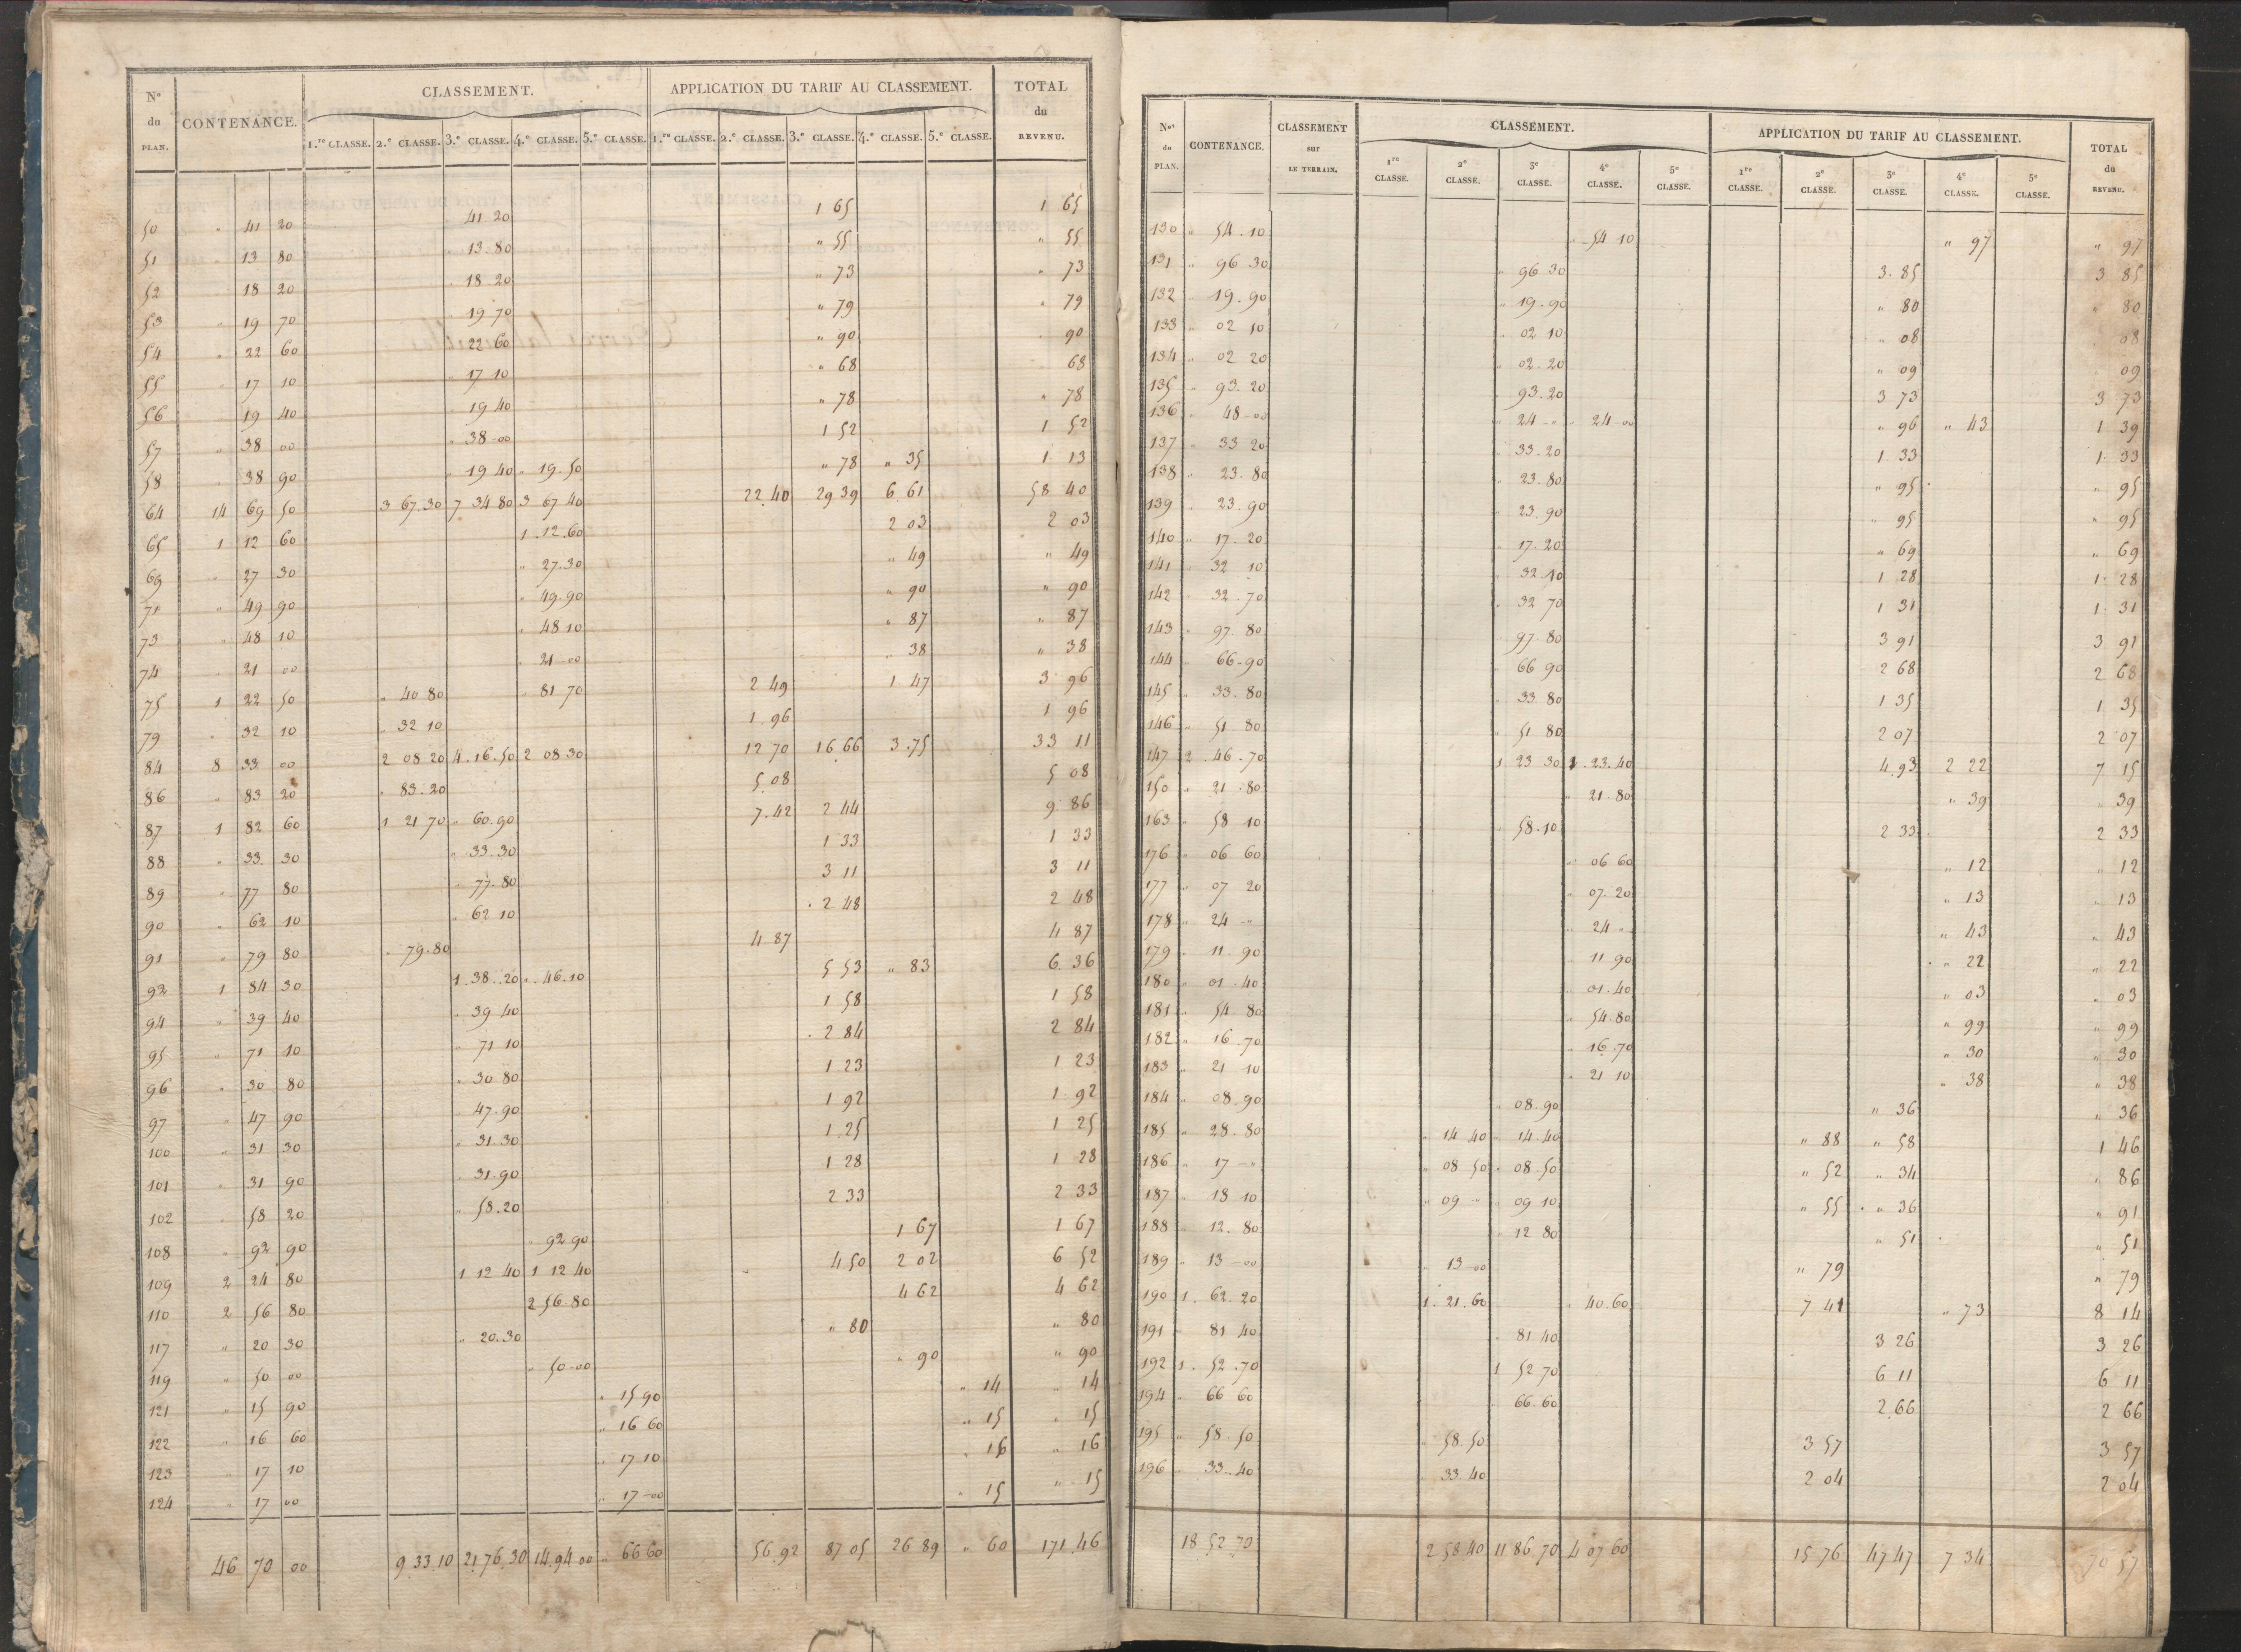 N° du PLAN. CONTENANCE. CLASSEMENT. APPLICATION DU TARIF AU CLASSEMENT. TOTAL du REVENU.
1.re CLASSE. 2.e CLASSE. 3.e CLASSE. 4.e CLASSE. 5.e CLASSE. 1.re CLASSE. 2.e CLASSE. 3.e CLASSE. 4.e CLASSE. 5.e CLASSE.
50 " 41 20 " 41.20 1 65 1 65
51 " 13 80 " 13.80 " 55 " 55
52 " 18 20 " 18.20 " 73 " 73
53 " 19 70 " 19 70 " 79 " 79
54 " 22 60 " 22 60 " 90 " 90
55 " 17 10 " 17 10 " 68 " 68
56 " 19 40 " 19 40 " 78 " 78
57 " 38 00 " 38-00 1 52 1 52
58 " 38 90 " 19 40 " 19.50 " 78 " 35 1 13
64 14 69 50 3 67.30 7 34 80 3 67 40 22.40 29 39 6 61 58 40
65 1 12 60 1.12.60 2 03 2 03
69 " 27 30 " 27.30 " 49 " 49
71 " 49 90 " 49.90 " 90 " 90
73 " 48 10 " 48 10 " 87 " 87
74 " 21 00 " 21 00 " 38 " 38
75 1 22 50 " 40 80 " 81 70 2 49 1 47 3 96
79 " 32 10 " 32 10 1.96 1 96
84 8 33 00 2 08 20 4.16.50 2 08 30 12 70 16 66 3.75 33 11
86 " 83 20 " 83.20 5 08 5 08
87 1 82 60 1 21 70 " 60.90 7.42 2 44 9 86
88 " 33 30 " 33.30 1 33 1 33
89 " 77 80 " 77.80 3 11 3 11
90 " 62 10 " 62 10 2 48 2 48
91 " 79 80 " 79.80 4 87 4 87
92 1 84 30 1.38.20 " 46.10 5 53 " 83 6 36
94 " 39 40 " 39 40 1 58 1 58
95 " 71 10 " 71 10 2 84 2 84
96 " 30 80 " 30 80 1 23 1 23
97 " 47 90 " 47.90 1 92 1 92
100 " 31 30 " 31.30 1.25 1 25
101 " 31 90 " 31.90 1 28 1 28
102 " 58 20 " 58.20 2 33 2 33
108 " 92 90 " 92 90 1 67 1 67
109 2 24 80 1 12 40 1 12 40 4 50 2 02 6 52
110 2 56 80 2 56 80 4 62 4 62
117 " 20 30 " 20.30 " 80 " 80
119 " 50 00 " 50-00 " 90 " 90
121 " 15 90 " 15 90 " 14 " 14
122 " 16 60 " 16 60 " 15 " 15
123 " 17 10 " 17 10 " 16 " 16
124 " 17 00 " 17-00 " 15 " 15
46 70 00 9.33.10 21.76.30 14.94 00 " 66 60 56.92 87 05 26 89 " 60 171.46
Nos du PLAN. CONTENANCE. CLASSEMENT sur LE TERRAIN. CLASSEMENT. APPLICATION DU TARIF AU CLASSEMENT. TOTAL du REVENU.
1re CLASSE. 2e CLASSE. 3e CLASSE. 4e CLASSE. 5e CLASSE. 1re CLASSE. 2e CLASSE. 3e CLASSE. 4e CLASSE. 5e CLASSE.
130 " 54.10 " 54 10 " 97 " 97
131 " 96 30 " 96 30 3.85 3 85
132 " 19.90 " 19.90 " 80 " 80
133 " 02 10 " 02 10 " 08 " 08
134 " 02 20 " 02.20 " 09 " 09
135 " 93.20 " 93.20 3 73 3 73
136 " 48-00 " 24-" " 24-00 " 96 " 43 1 39
137 " 33 20 " 33.20 1 33 1 33
138 " 23.80 " 23.80 " 95 " 95
139 " 23.90 " 23.90 " 95 " 95
140 " 17-20 " 17.20 " 69 " 69
141 " 32 10 " 32.10 1 28 1 28
142 " 32.70 " 32 70 1 31 1 31
143 " 97.80 " 97.80 3 91 3 91
144 " 66.90 " 66 90 2 68 2 68
145 " 33.80 " 33.80 1 35 1 35
146 " 51.80 " 51 80 2 07 2 07
147 2.46.70 1 23 30 1.23.40 4.93 2 22 7 15
150 " 21.80 " 21.80 " 39 " 39
163 " 58 10 " 58.10 2 33 2 33
176 " 06 60 " 06 60 " 12 " 12
177 " 07 20 " 07.20 " 13 " 13
178 " 24-" " 24 " " 43 " 43
179 " 11.90 " 11 90 " 22 " 22
180 " 01.40 " 01.40 " 03 " 03
181 " 54.80 " 54.80 " 99 " 99
182 " 16.70 " 16.70 " 30 " 30
183 " 21 10 " 21 10 " 38 " 38
184 " 08.90 " 08.90 " 36 " 36
185 " 28.80 " 14 40 " 14.40 " 88 " 58 1 46
186 " 17-" " 08 50 " 08.50 " 52 " 34 " 86
187 " 18 10 " 09 " " 09 10 " 55 " 36 " 91
188 " 12.80 " 12 80 " 51 " 51
189 " 13-00 " 13-00 " 79 " 79
190 1.62.20 1.21.60 " 40.60 7 41 " 73 8 14
191 " 81 40 " 81 40 3 26 3 26
192 1.52.70 1 52 70 6 11 6 11
194 " 66 60 " 66.60 2.66 2 66
195 " 58.50 " 58.50 3 57 3 57
196 " 33.40 " 33.40 2 04 2 04
18 52 70 2 58 40 11 86 70 4 07 60 15 76 47 47 7 34 70 57